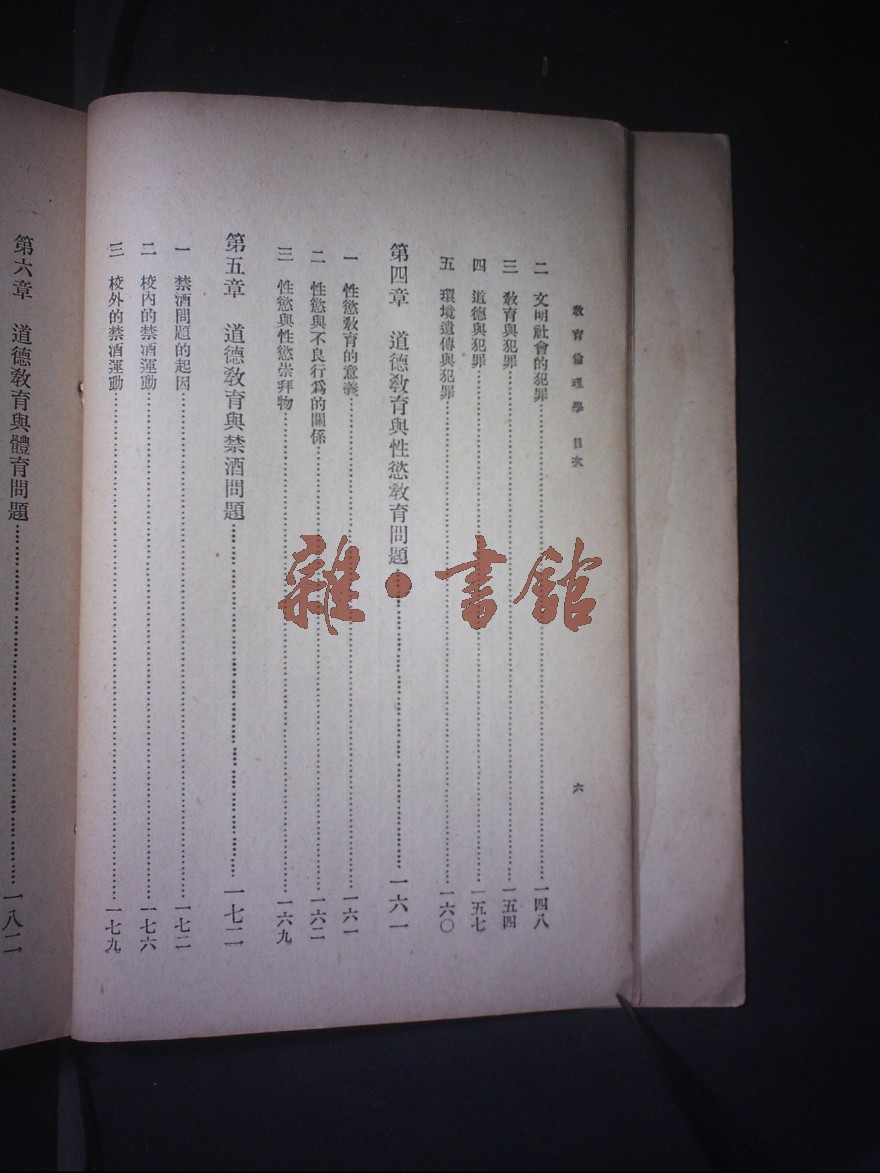 教育倫理學 目次 六
二 文明社會的犯罪 一四八
三 教育與犯罪 一五四
四 道德與犯罪 一五七
五 環境遺傳與犯罪 一六〇
第四章 道德教育與性慾教育問題 一六一
一 性慾教育的意義 一六一
二 性慾與不良行爲的關係 一六二
三 性慾與性慾崇拜物 一六九
第五章 道德教育與禁酒問題 一七二
一 禁酒問題的起因 一七二
二 校內的禁酒運動 一七六
三 校外的禁酒運動 一七九
第六章 道德教育與體育問題 一八二
雜·書館